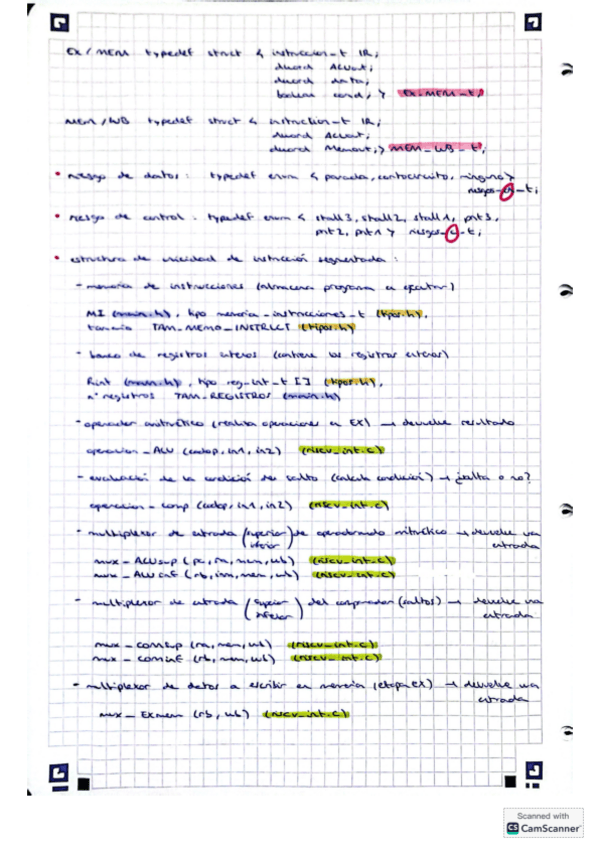 EX / MEM typedef struct { instruccion_t IR;
dword ALUout;
dword data;
boolean cond; } EX_MEM_t;
MEM / WB typedef struct { instruction_t IR;
dword ALUout;
dword Memout; } MEM_WB_t;
• riesgo de datos : typedef enum { parada, cortocircuito, ninguno }
riesgos_d_t;
• riesgo de control : typedef enum { stall3, stall2, stall1, pnt3,
pnt2, pnt1 } riesgos_c_t;
• estructura de unicidad de instrucción segmentada :
- memoria de instrucciones (almacena programa a ejecutar)
MI (main.h), tipo memoria_instrucciones_t (tipos.h),
tamaño TAM_MEMO_INSTRUCT (tipos.h)
- banco de registros enteros (contiene los registros enteros)
Rint (main.h), tipo reg_int_t [] (tipos.h),
nº registros TAM_REGISTROS (main.h)
- operador aritmético (realiza operaciones en EX) → devuelve resultado
operacion_ALU (codop, in1, in2) (riscv_int.c)
- evaluación de la condición de salto (calcula condición) → ¿salta o no?
operacion_comp (codop, in1, in2) (riscv_int.c)
- multiplexor de entrada (superior inferior) de operando aritmético → devuelve una
entrada
mux_ALUsup (pc, ra, mem, wb) (riscv_int.c)
mux_ALUinf (rb, inm, mem, wb) (riscv_int.c)
- multiplexor de entrada (superior inferior) del comparador (saltos) → devuelve una
entrada
mux_comsup (ra, mem, wb) (riscv_int.c)
mux_cominf (rb, mem, wb) (riscv_int.c)
- multiplexor de datos a escribir en memoria (etapa EX) → devuelve una
entrada
mux_Exmem (rb, wb) (riscv_int.c)
Scanned with
CS CamScanner